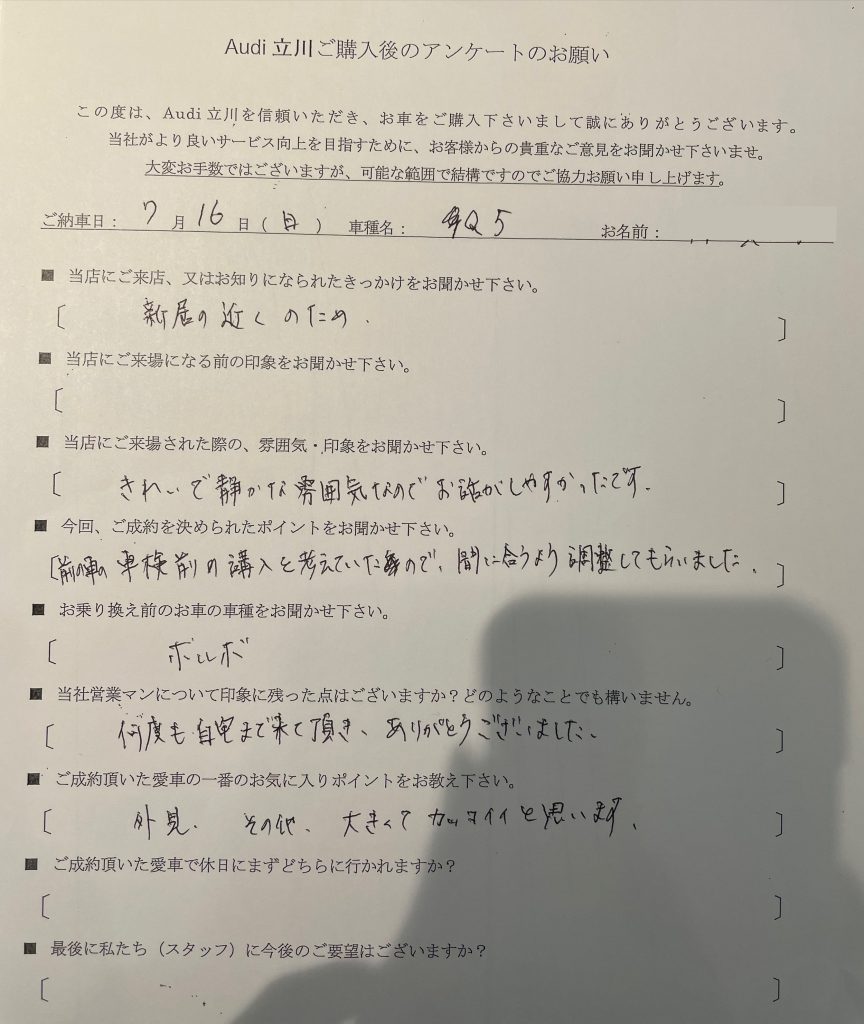 Audi 立川ご購入後のアンケートのお願い
この度は、Audi 立川を信頼いただき、お車をご購入下さいまして誠にありがとうございます。
当社がより良いサービス向上を目指すために、お客様からの貴重なご意見をお聞かせ下さいませ。
大変お手数ではございますが、可能な範囲で結構ですのでご協力お願い申し上げます。
ご納車日： 7 月 16 日（日） 車種名： Q5 お名前：
■ 当店にご来店、又はお知りになられたきっかけをお聞かせ下さい。
〔 新居の近くのため. 〕
■ 当店にご来場になる前の印象をお聞かせ下さい。
〔 〕
■ 当店にご来場された際の、雰囲気・印象をお聞かせ下さい。
〔 きれいで静かな雰囲気なのでお話がしやすかったです. 〕
■ 今回、ご成約を決められたポイントをお聞かせ下さい。
〔 前の車の車検前の購入を考えていたので、間に合うよう調整してもらいました. 〕
■ お乗り換え前のお車の車種をお聞かせ下さい。
〔 ボルボ 〕
■ 当社営業マンについて印象に残った点はございますか？どのようなことでも構いません。
〔 何度も自宅まで来て頂き、ありがとうございました. 〕
■ ご成約頂いた愛車の一番のお気に入りポイントをお教え下さい。
〔 外見. その他. 大きくてカッコイイと思います. 〕
■ ご成約頂いた愛車で休日にまずどちらに行かれますか？
〔 〕
■ 最後に私たち（スタッフ）に今後のご要望はございますか？
〔 〕